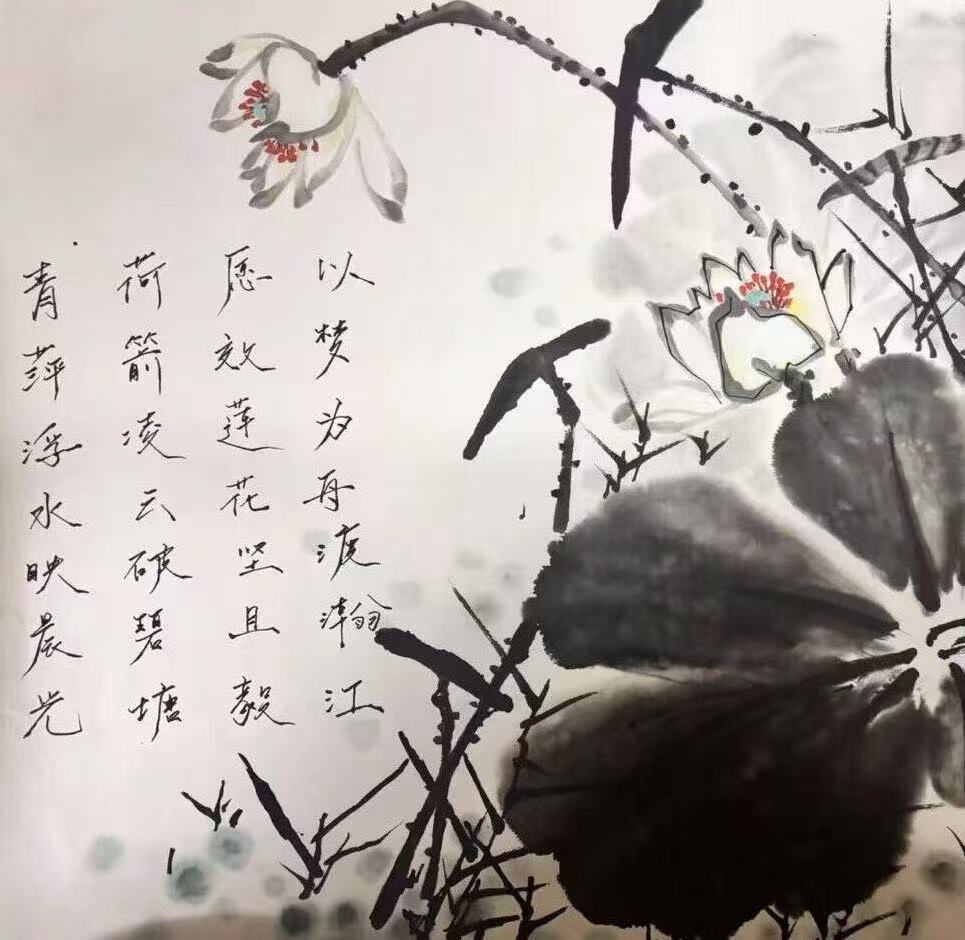 青萍浮水映晨光
荷箭凌云破碧塘
愿效莲花坚且毅
以梦为舟渡瀚江